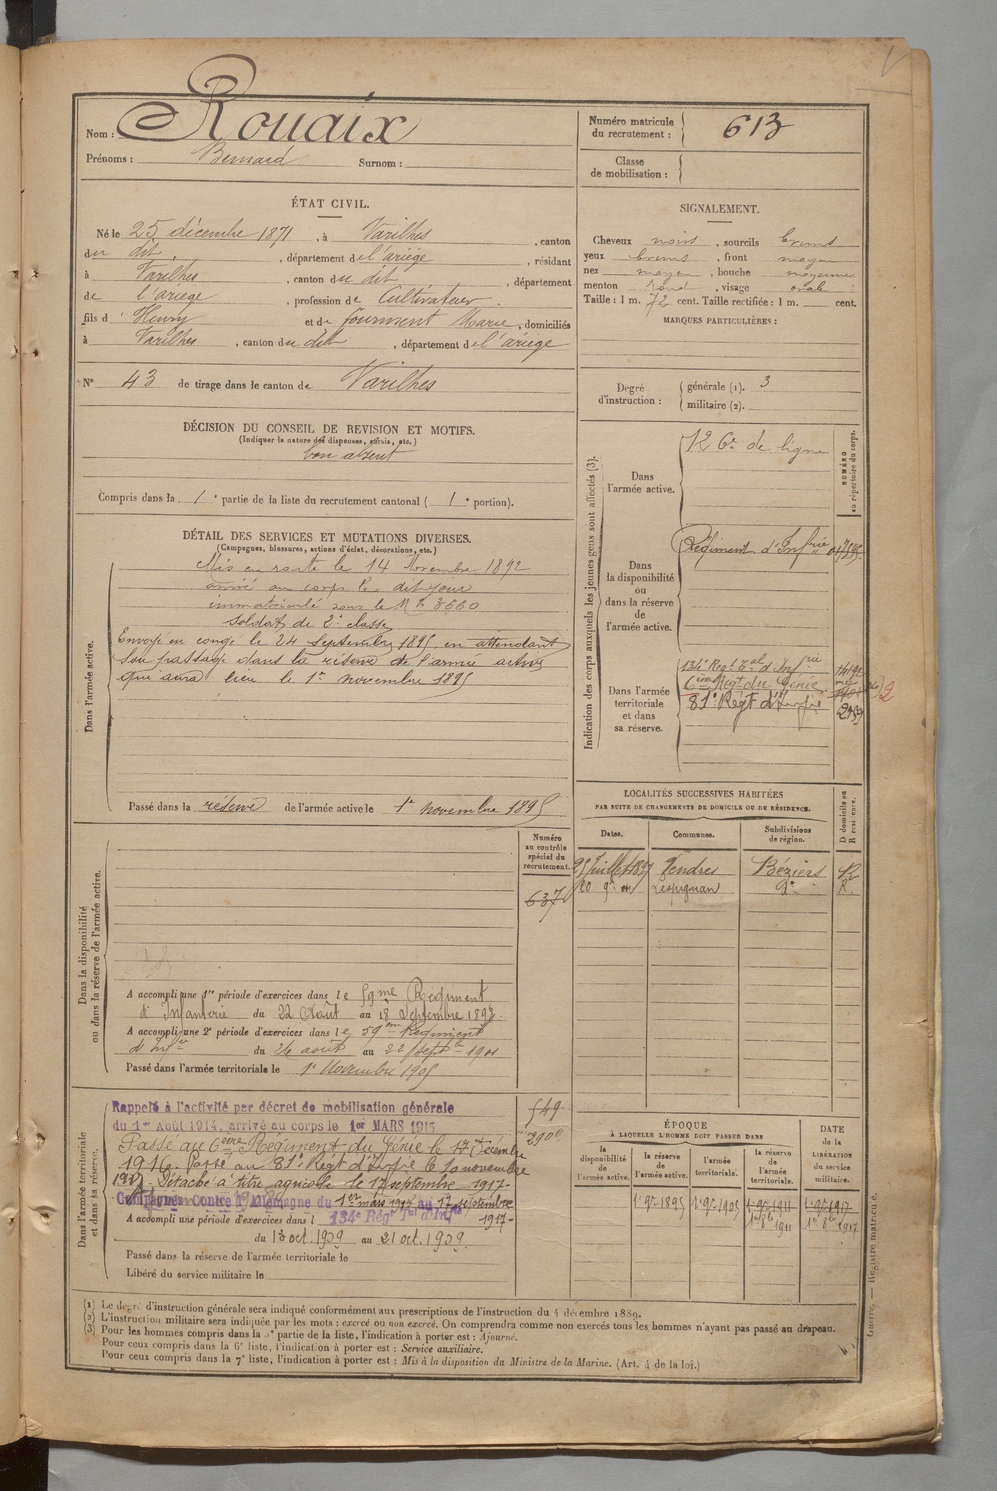 Nom : Rouaix
Prénoms : Bernard Surnom :
Numéro matricule du recrutement : 613
Classe de mobilisation :
ÉTAT CIVIL.
Né le 25 décembre 1871, à Varilhes, canton
du dit, département de l'ariège, résidant
à Varilhes, canton du dit, département
de l'ariège, profession de Cultivateur.
fils d' Henry et de fourment Marie, domiciliés
à Varilhes, canton du dit, département de l'ariège
N° 43 de tirage dans le canton de Varilhes
SIGNALEMENT.
Cheveux noirs, sourcils bruns
yeux bruns, front moyen
nez moyen, bouche moyenne
menton rond, visage ovale
Taille : 1 m. 72 cent. Taille rectifiée : 1 m. cent.
MARQUES PARTICULIÈRES :
Degré d'instruction : générale (1). 3
militaire (2).
DÉCISION DU CONSEIL DE REVISION ET MOTIFS.
(Indiquer la nature des dispenses, sursis, etc.)
bon absent
Compris dans la 1e partie de la liste du recrutement cantonal ( 1e portion).
DÉTAIL DES SERVICES ET MUTATIONS DIVERSES.
(Campagnes, blessures, actions d'éclat, décorations, etc.)
Dans l'armée active.
Mis en route le 14 Novembre 1892
arrivé au corps le dit jour
immatriculé sous le N° 3660
Soldat de 2e classe
Envoyé en congé le 24 Septembre 1895 en attendant
son passage dans la réserve de l'armée active
qui aura lieu le 1er novembre 1895
Passé dans la réserve de l'armée active le 1er novembre 1895
Indication des corps auxquels les jeunes gens sont affectés (3).
NUMÉRO au répertoire du corps.
Dans l'armée active.
126e de ligne
Dans la disponibilité ou dans la réserve de l'armée active.
Régiment d'Infrie
Dans l'armée territoriale et dans sa réserve.
134e Regt Tal d'Infrie
6ème Regt du Génie
81e Régt d'Infrie
LOCALITÉS SUCCESSIVES HABITÉES
PAR SUITE DE CHANGEMENTS DE DOMICILE OU DE RÉSIDENCE.
Dates. Communes. Subdivisions de région. D domicile ou R résidence.
25 Juillet 1897 Vendres Béziers R
Lespignan de R.
Dans la disponibilité ou dans la réserve de l'armée active.
Numéro au contrôle spécial du recrutement.
637
A accompli une 1re période d'exercices dans le 59me Regiment
d'Infanterie du 22 Août au 18 Septembre 1898
A accompli une 2e période d'exercices dans le 59me Régiment
d'Infie du 26 août au 22 septbre 1901
Passé dans l'armée territoriale le 1er Novembre 1905
Dans l'armée territoriale et dans sa réserve.
549
2900
Rappelé à l'activité par décret de mobilisation générale
du 1er Août 1914, arrivé au corps le 1er MARS 1915
Passé au 6ème Régiment du Génie le 17 Décembre
1916. Passé au 81e Régt d'Infrie le 10 novembre
1917. Détaché à titre agricole le 17 septembre 1917-
Campagnes Contre l'Allemagne du 1er mars 1915 au 17 septembre
1917-
A accompli une période d'exercices dans l 134e Régt Tal d'Infie
du 13 oct. 1909 au 21 oct. 1909.
Passé dans la réserve de l'armée territoriale le
Libéré du service militaire le
ÉPOQUE
À LAQUELLE L'HOMME DOIT PASSER DANS
la disponibilité de l'armée active. la réserve de l'armée active. l'armée territoriale. la réserve de l'armée territoriale.
DATE de la LIBÉRATION du service militaire.
1er 9bre 1895 1er 9bre 1905 1er 9bre 1911 1er 9bre 1917
1er 8bre 1911 1er 8bre 1917
(1) Le degré d'instruction générale sera indiqué conformément aux prescriptions de l'instruction du 4 décembre 1889.
(2) L'instruction militaire sera indiquée par les mots : exercé ou non exercé. On comprendra comme non exercés tous les hommes n'ayant pas passé au drapeau.
(3) Pour les hommes compris dans la 5e partie de la liste, l'indication à porter est : Ajourné.
Pour ceux compris dans la 6e liste, l'indication à porter est : Service auxiliaire.
Pour ceux compris dans la 7e liste, l'indication à porter est : Mis à la disposition du Ministre de la Marine. (Art. 4 de la loi.)
Guerre. — Registre matricule.